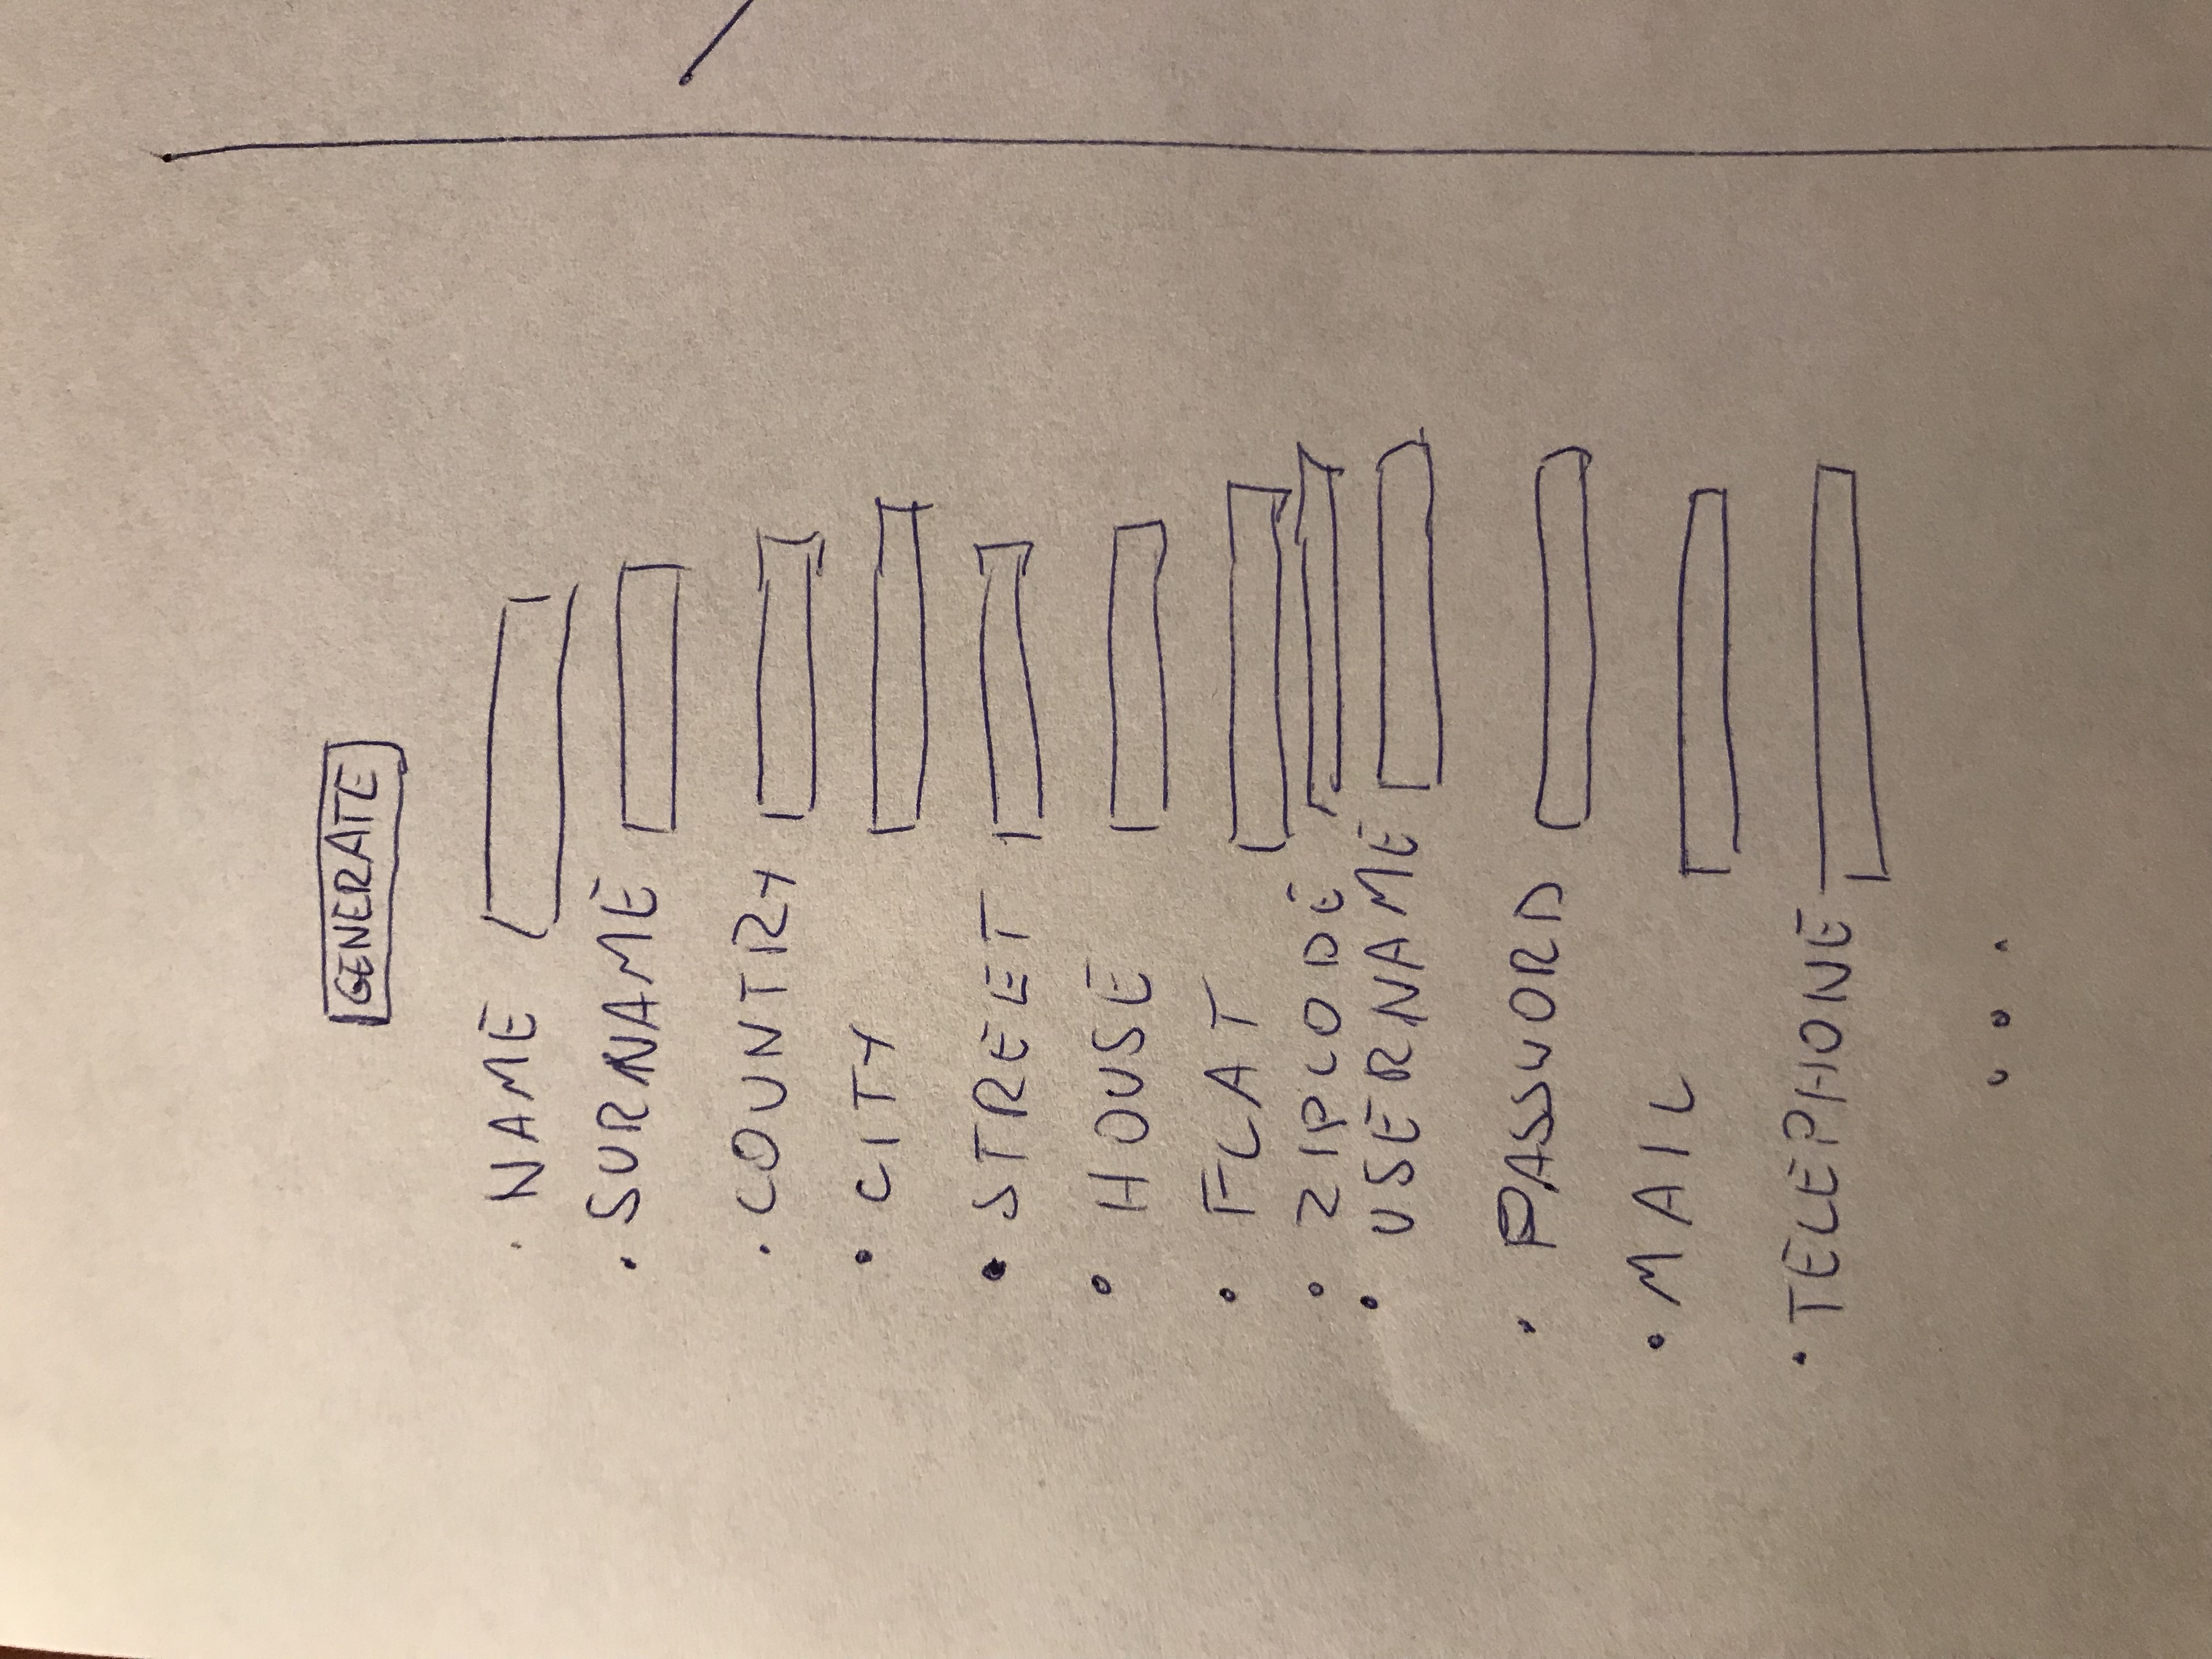 GENERATE
· NAME
· SURNAME
· COUNTRY
· CITY
· STREET
· HOUSE
· FLAT
· ZIPCODE
· USERNAME
· PASSWORD
· MAIL
· TELEPHONE
...